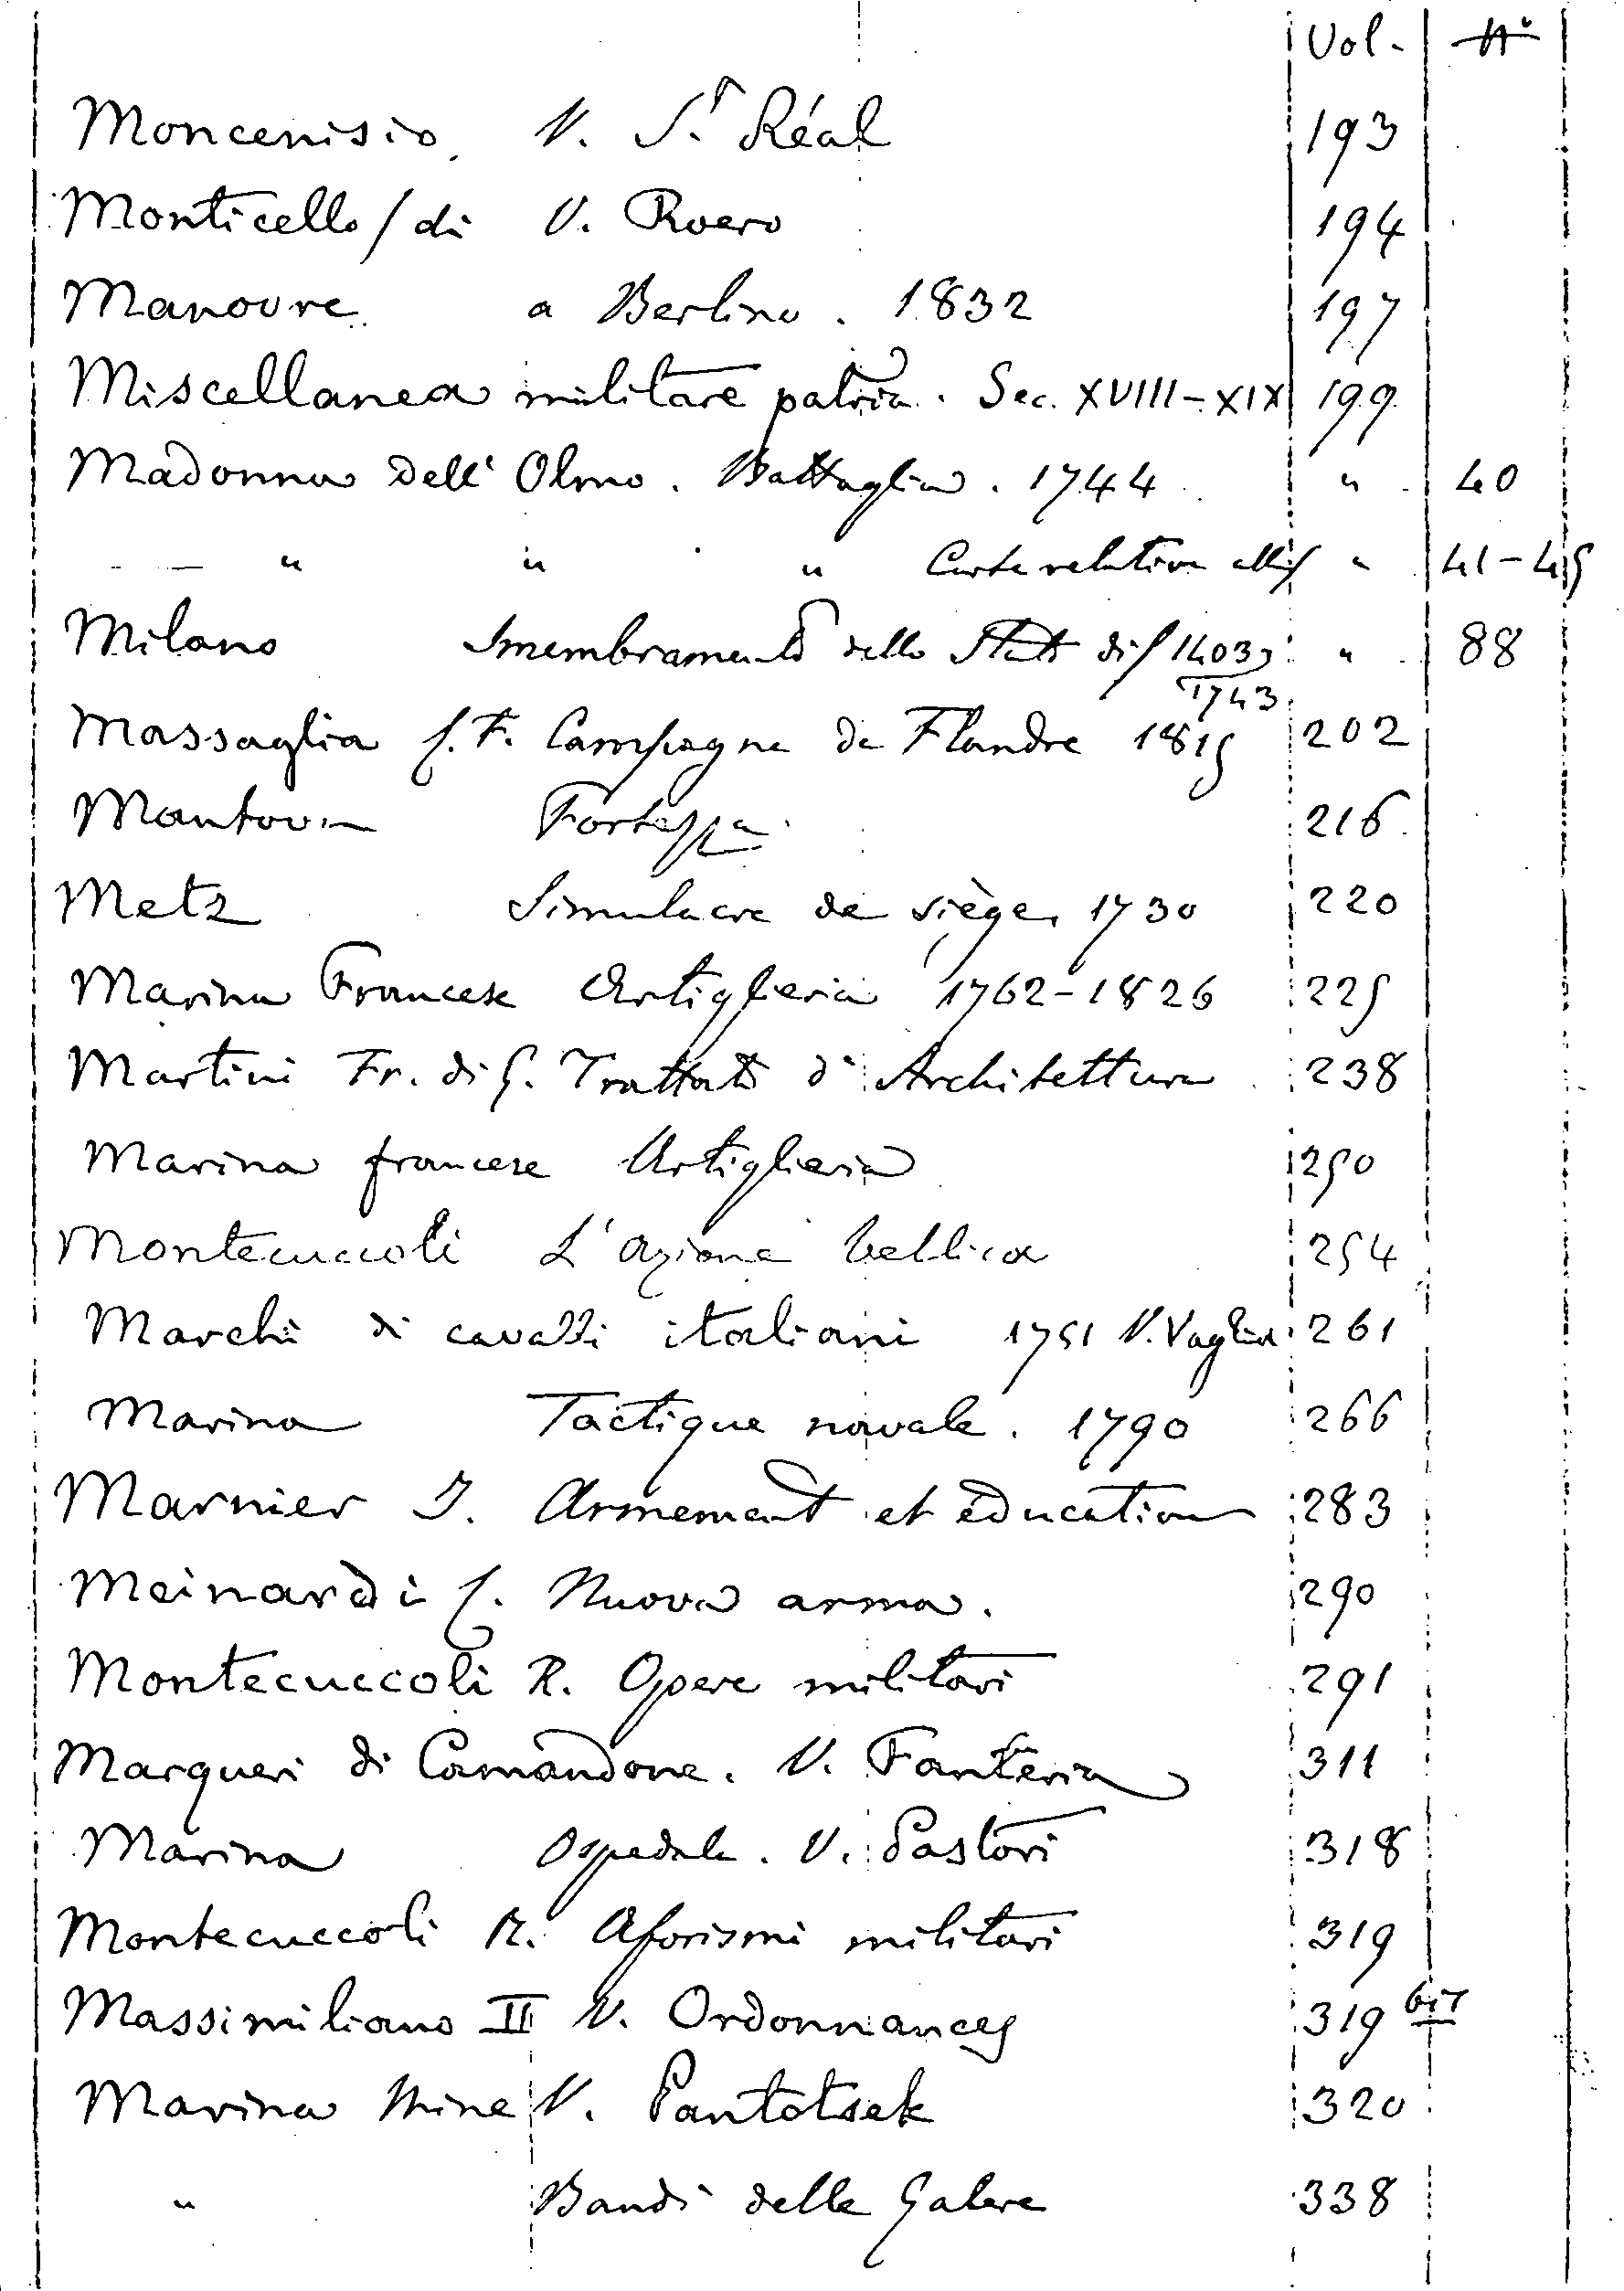 Vol. N°
Moncenisio. V. S.t Réal 193
Monticello / di V. Roero 194
Manovre a Berlino. 1832 197
Miscellanea militare patria. Sec. XVIII-XIX 199
Madonna dell' Olmo. Battaglia. 1744 " 40
" " " Carte relative alla " 41-45
Milano Smembramento dello Stato di / 1403 " 88
1743
Massaglia C. F. Campagne de Flandre 1815 202
Mantova Fortezza 216
Metz Simulacre de siège, 1730 220
Marina Francese Artiglieria 1762-1826 225
Martini Fr. di G. Trattato d'Architettura 238
Marina francese Artiglieria 250
Montecuccoli L'azione bellica 254
Marchi di cavalli italiani 1751 V. Vaglia 261
Marina Tactique navale. 1790 266
Marnier J. Armement et éducation 283
Meinardi C. Nuova arma. 290
Montecuccoli R. Opere militari 291
Marqueri di Camandone. V. Fanteria 311
Marina Ospedale. V. Pastori 318
Montecuccoli R. Aforismi militari 319
Massimiliano II V. Ordonnances 319 bis
Marina Mine V. Pantotsek 320
" Bandi delle Galere 338